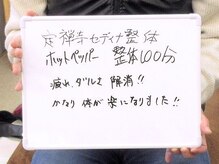 定禅寺セディナ整体
ホットペッパー 整体100分
疲れ、ダルさ 解消!!
かなり 体が 楽になりました!!